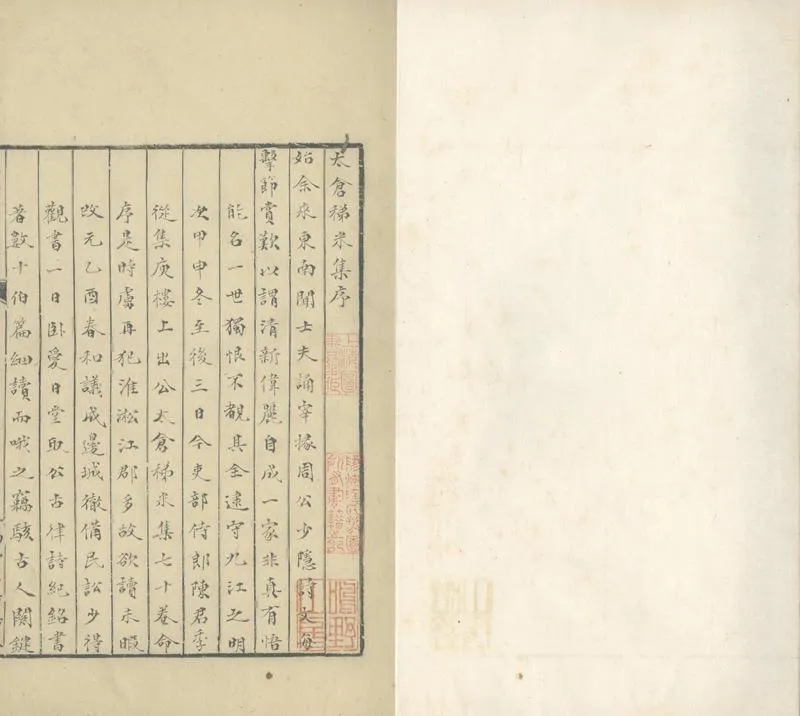 太倉稊米集序
始余來東南聞士夫誦宰掾周公少隱詩文每
擊節賞歎以謂清新偉麗自成一家非真有悟
能名一世獨恨不覩其全逮守九江之明
次甲申冬至後三日今吏部侍郎陳君季
從集庾樓上出公太倉稊米集七十卷命
序是時虜再犯淮淞江郡多故欲讀未暇
改元乙酉春和議成邊城徹備民訟少得
觀書一日卧愛日堂取公古律詩紀銘書
著數十伯篇細讀而哦之竊駭古人關鍵